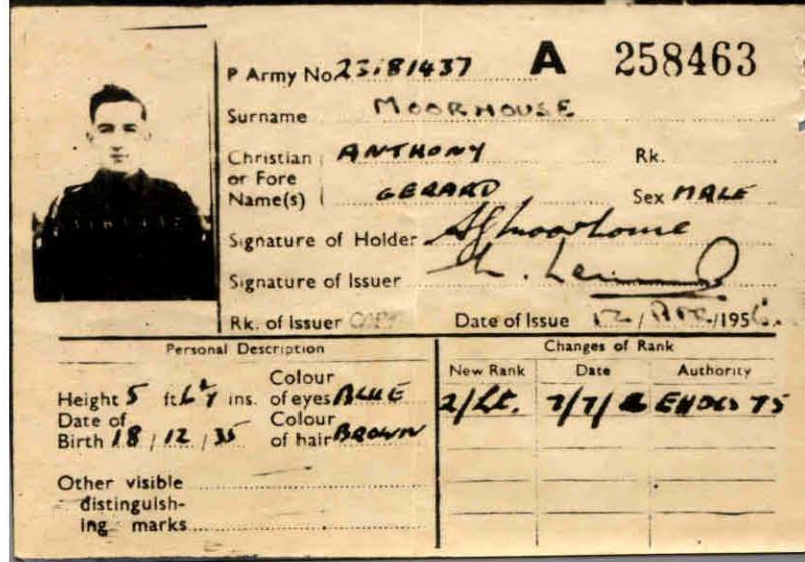 P Army No. 23181437 A 258463
Surname MOORHOUSE
Christian ANTHONY Rk.
or Fore
Name(s) GERARD Sex MALE
Signature of Holder AGMoorhouse
Signature of Issuer
Rk. of Issuer CAPT Date of Issue 12 / /1956.
Personal Description
Height 5 ft. ins.
Colour of eyes BLUE
Date of Birth 18 / 12 / 35
Colour of hair BROWN
Other visible
distinguish-
ing marks
Changes of Rank
New Rank Date Authority
2/Lt. 7/7/